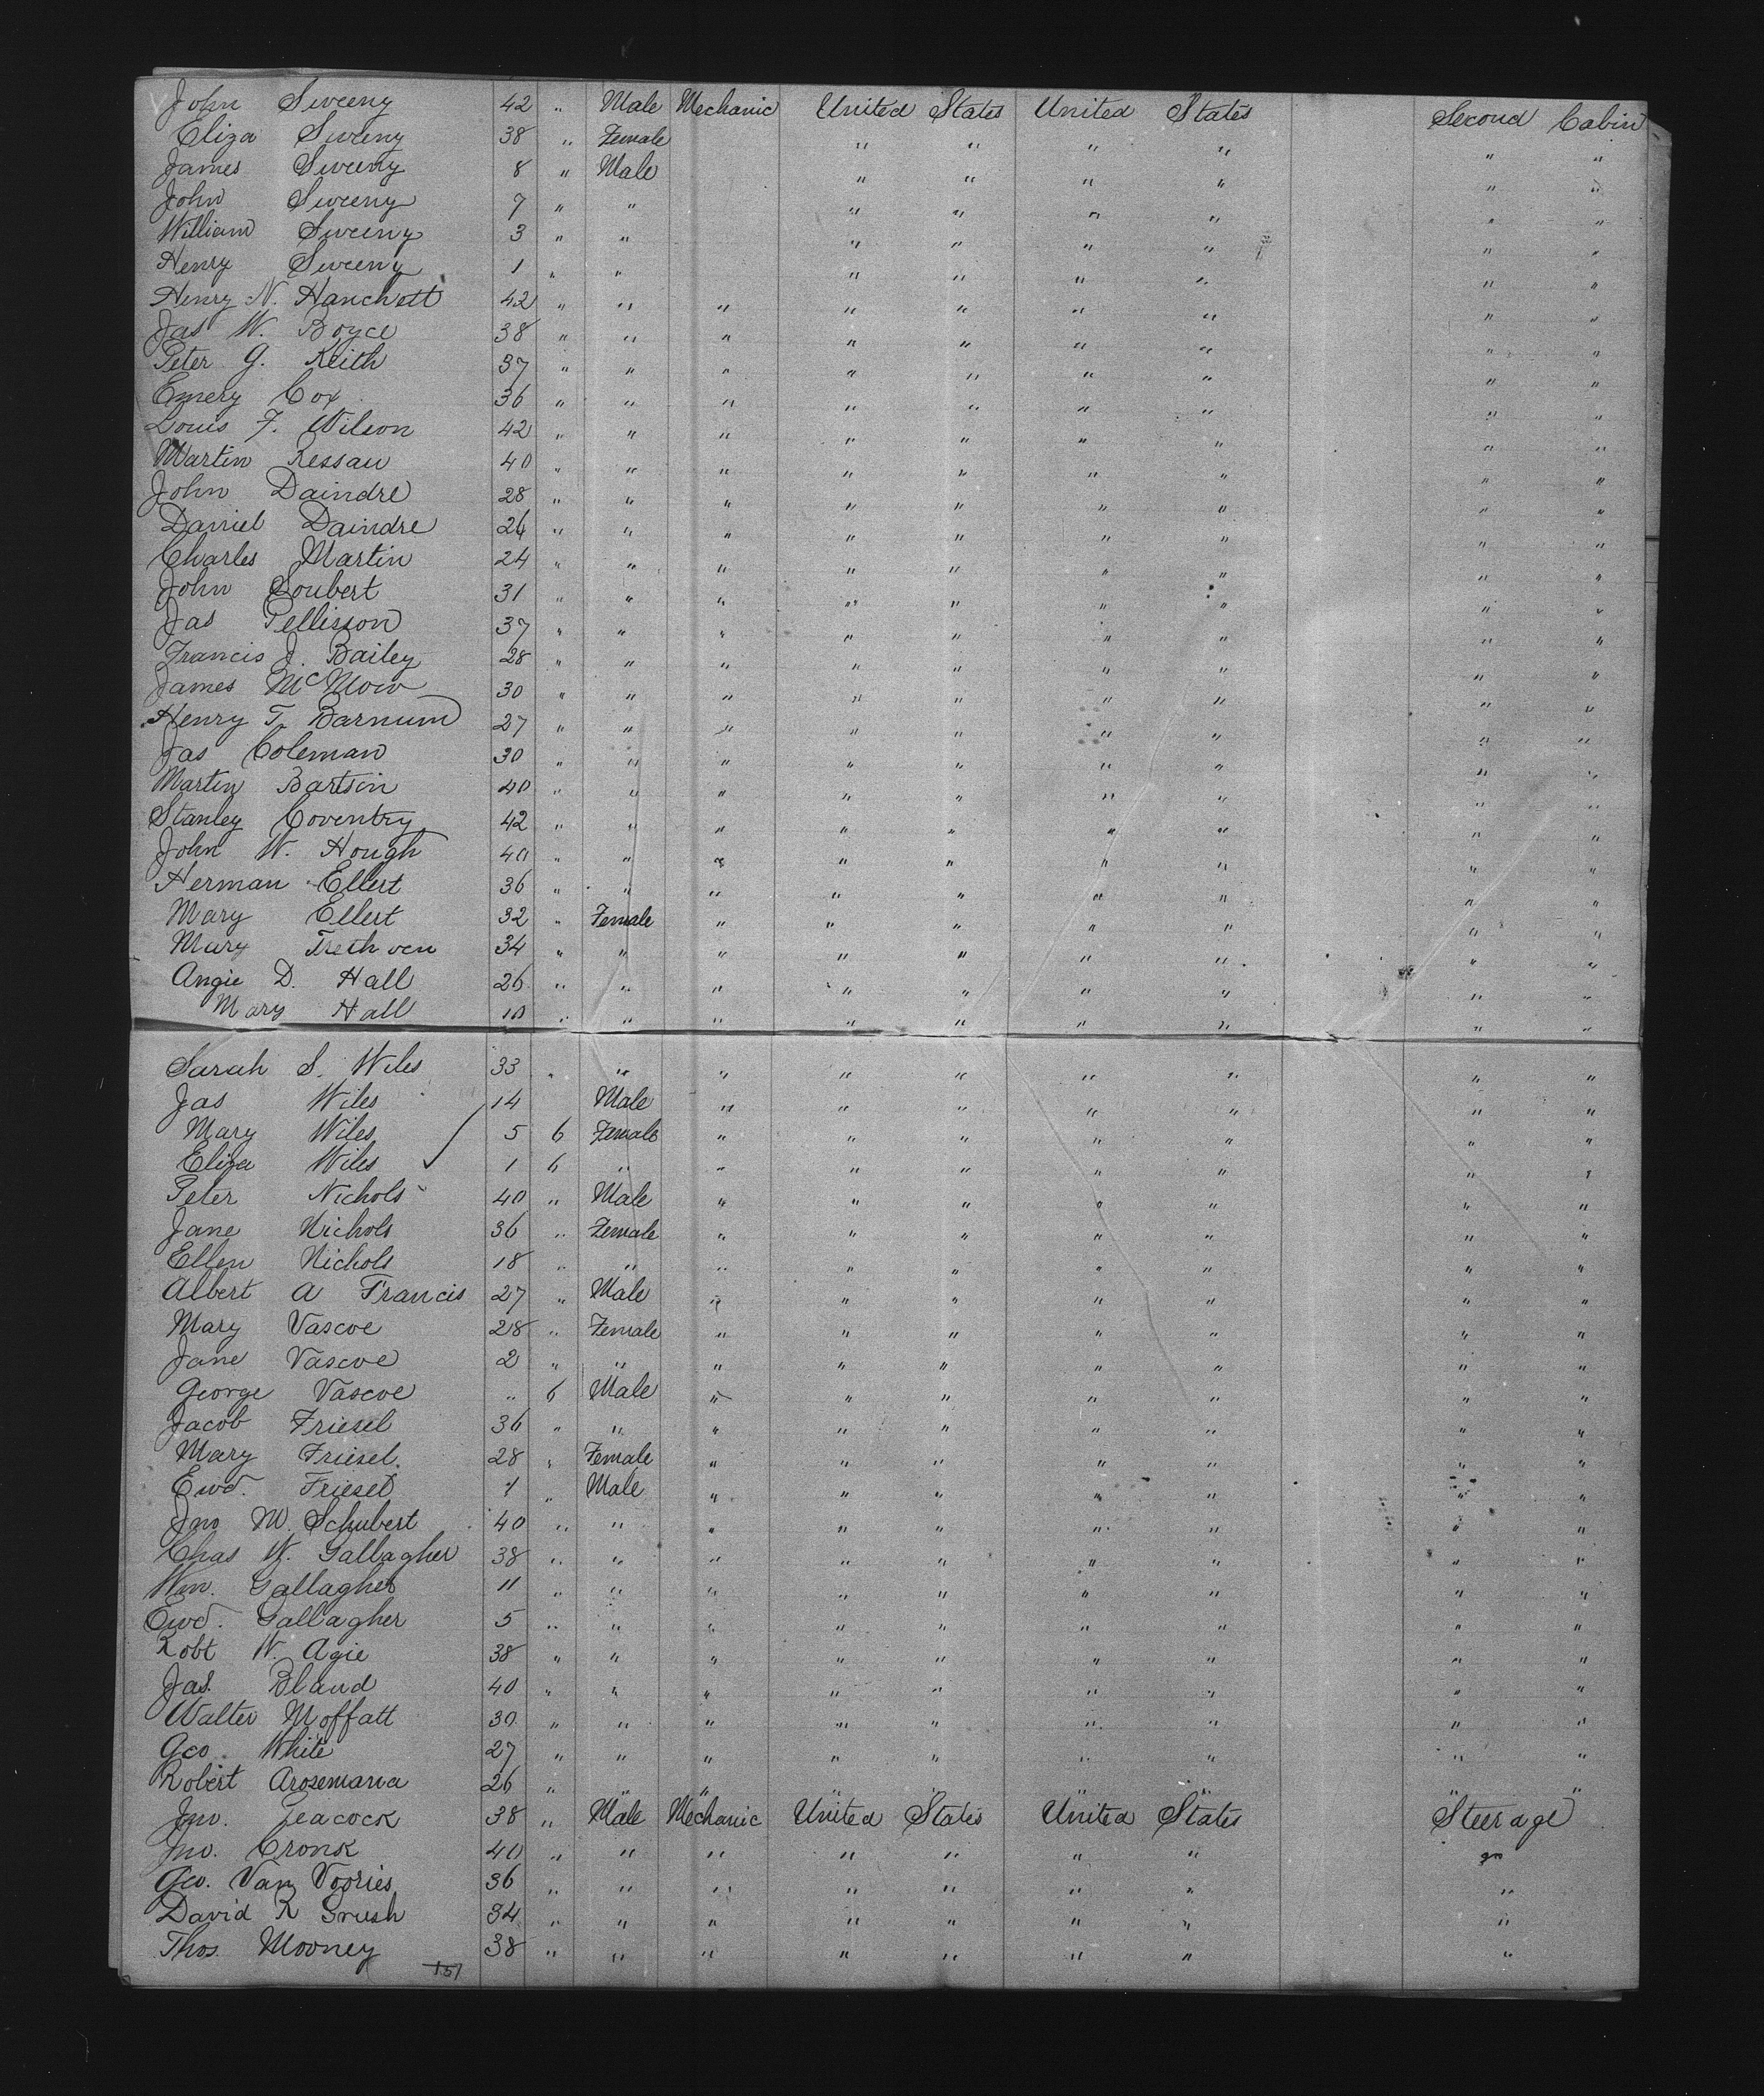 John Sweeny 42 " Male Mechanic United States United States Second Cabin
Eliza Sweeny 38 " Female " " " " " "
James Sweeny 8 " Male " " " " " "
John Sweeny 7 " " " " " " " "
William Sweeny 3 " " " " " " " "
Henry Sweeny 1 " " " " " " " "
Henry N. Hanchett 42 " " " " " " " " "
Jas W. Boyce 38 " " " " " " " " "
Peter G. Keith 37 " " " " " " " " "
Emery Cox 36 " " " " " " " " "
Louis F. Wilson 42 " " " " " " " " "
Martin Ressau 40 " " " " " " " " "
John Daindre 28 " " " " " " " " "
Daniel Daindre 26 " " " " " " " " "
Charles Martin 24 " " " " " " " " "
John Soubert 31 " " " " " " " " "
Jas Pellisson 37 " " " " " " " " "
Francis J. Bailey 28 " " " " " " " " "
James 30 " " " " " " " " "
Henry T. Barnum 27 " " " " " " " " "
Jas Coleman 30 " " " " " " " " "
Martin Bartsin 40 " " " " " " " " "
Stanley Coventry 42 " " " " " " " " "
John W. Hough 40 " " " " " " " " "
Herman Ellert 36 " " " " " " " " "
Mary Ellert 32 " Female " " " " " " "
Mary Treth ven 34 " " " " " " " " "
Angie D. Hall 26 " " " " " " " " "
Mary Hall 10 " " " " " " " " "
Sarah S. Wiles 33 " " " " " " " " "
Jas Wiles 14 Male " " " " " " "
Mary Wiles 5 6 Female " " " " " " "
Eliza Wiles 1 6 " " " " " " " "
Peter Nichols 40 " Male " " " " " " "
Jane Nichols 36 " Female " " " " " " "
Ellen Nichols 18 " " " " " " " " "
Albert A Francis 27 " Male " " " " " " "
Mary Vascoe 28 " Female " " " " " " "
Jane Vascoe 2 " " " " " " " " "
George Vascoe " 6 Male " " " " " " "
Jacob Friesel 36 " " " " " " " " "
Mary Friesel. 28 " Female " " " " " " "
Ewd. Friesel " Male " " " " " " "
Jno M. Schubert 40 " " " " " " " " "
Chas W. Gallagher 38 " " " " " " " " "
Wm. Gallagher 11 " " " " " " " " "
Ewd. Gallagher 5 " " " " " " " " "
Robt W. Agie 38 " " " " " " " " "
Jas. Bland 40 " " " " " " " " "
Walter Moffatt 30 " " " " " " " " "
Geo. White 27 " " " " " " " " "
Robert Arosemana 26 " " " " " " " " "
Jno. Peacock 38 " Male Mechanic United States United States Steerage
Jno. Cronk 40 " " " " " " "
Geo. Van Voories 36 " " " " " " " "
David R Grush 34 " " " " " " " "
Thos. Mooney 38 " " " " " " " "
151